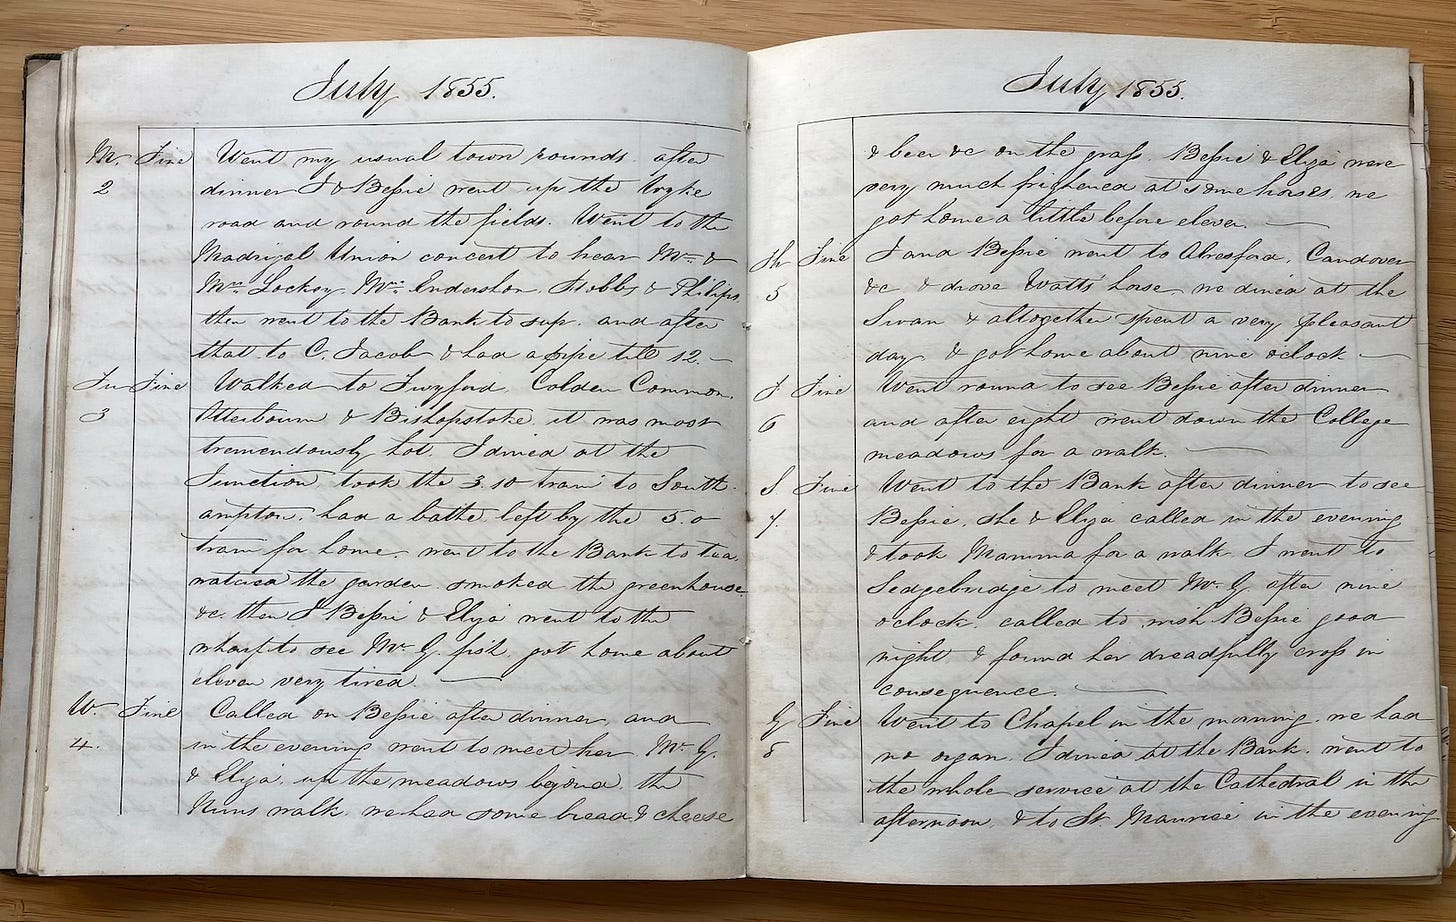 July 1855.
M. Fine Went my usual town rounds. after
2 dinner I & Bessie went up the
road and round the fields. Went to the
Madrigal Union concert to hear Mr. &
Mrs. Lockey, Mrs. Endershon, Hobbs & Philips.
then went to the Bank to sup. and after
that to C. Jacob & had a pipe till 12. —
Tu Fine Walked to Twyford, Colden Common,
3 Otterbourn & Bishopstoke. it was most
tremendously hot. I dined at the
Junction, took the 3.10 train to South-
ampton. had a bathe. left by the 5.0
train for home. went to the Bank to tea,
watered the garden. smoked the greenhouse
&c. then I Bessie & Eliza went to the
wharf to see Mr. G. fish. got home about
eleven very tired. —
W. Fine Called on Bessie after dinner and
4. in the evening went to meet her. Mr. G.
& Eliza. up the meadows beyond the
Nuns walk. we had some bread & cheese
July 1855.
& beer &c on the grass. Bessie & Eliza were
very much frightened at some horses. we
got home a little before eleven. —
Th Fine I and Bessie went to Alresford, Candover
5 &c. & drove Watts' horse. we dined at the
Swan & altogether spent a very pleasant
day. & got home about nine oclock —
F Fine Went round to see Bessie after dinner
6 and after eight went down the College
meadows for a walk. —
S. Fine Went to the Bank after dinner to see
7. Bessie. she & Eliza called in the evening
& took Mamma for a walk. I went to
Sedgebridge to meet Mr. G. after nine
oclock. called to wish Bessie good
night & found her dreadfully cross in
consequence. —
Fine Went to Chapel in the morning. we had
8 no organ. I dined at the Bank. went to
the whole service at the Cathedral in the
afternoon. & to St. Maurice in the evening